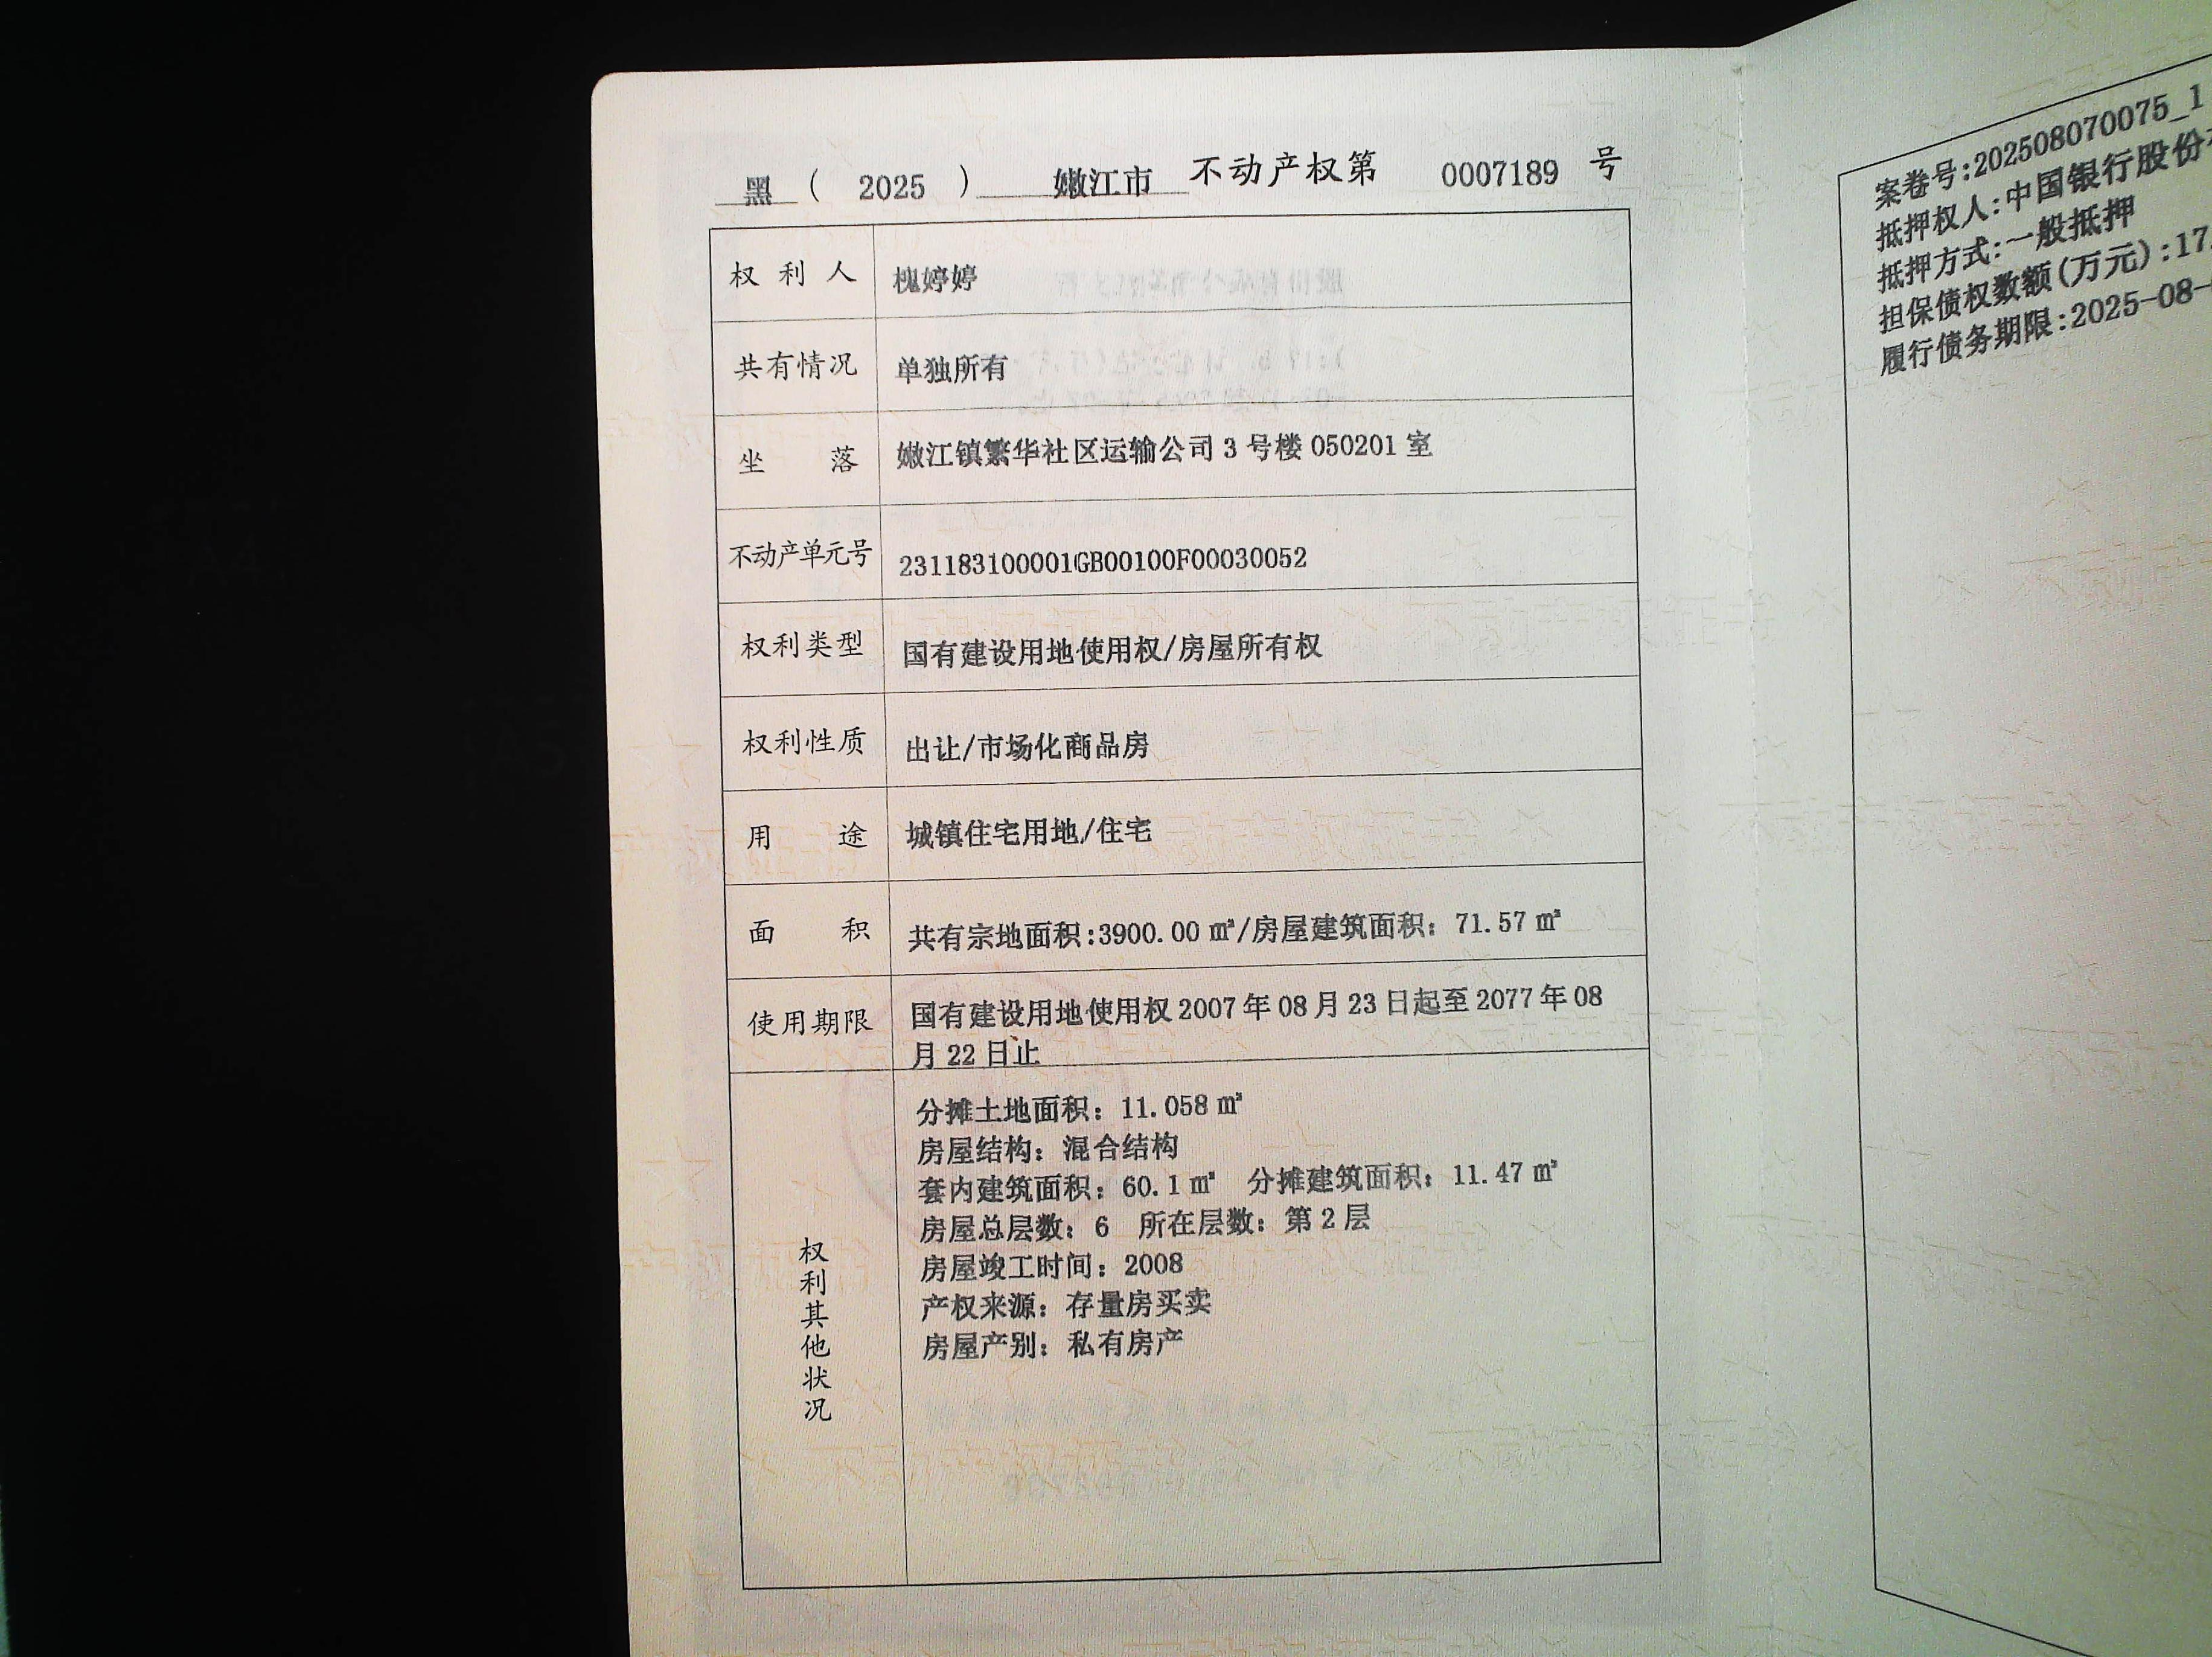 黑 ( 2025 ) 嫩江市 不动产权第 0007189 号
权利人 槐婷婷
共有情况 单独所有
坐落 嫩江镇繁华社区运输公司 3 号楼 050201 室
不动产单元号 231183100001GB00100F00030052
权利类型 国有建设用地使用权/房屋所有权
权利性质 出让/市场化商品房
用途 城镇住宅用地/住宅
面积 共有宗地面积:3900.00 ㎡/房屋建筑面积: 71.57 ㎡
使用期限 国有建设用地使用权 2007 年 08 月 23 日起至 2077 年 08
月 22 日止
权利其他状况
分摊土地面积: 11.058 ㎡
房屋结构: 混合结构
套内建筑面积: 60.1 ㎡ 分摊建筑面积: 11.47 ㎡
房屋总层数: 6 所在层数: 第 2 层
房屋竣工时间: 2008
产权来源: 存量房买卖
房屋产别: 私有房产
案卷号:202508070075_1
抵押权人:中国银行股份
抵押方式:一般抵押
担保债权数额(万元):17
履行债务期限:2025-08-